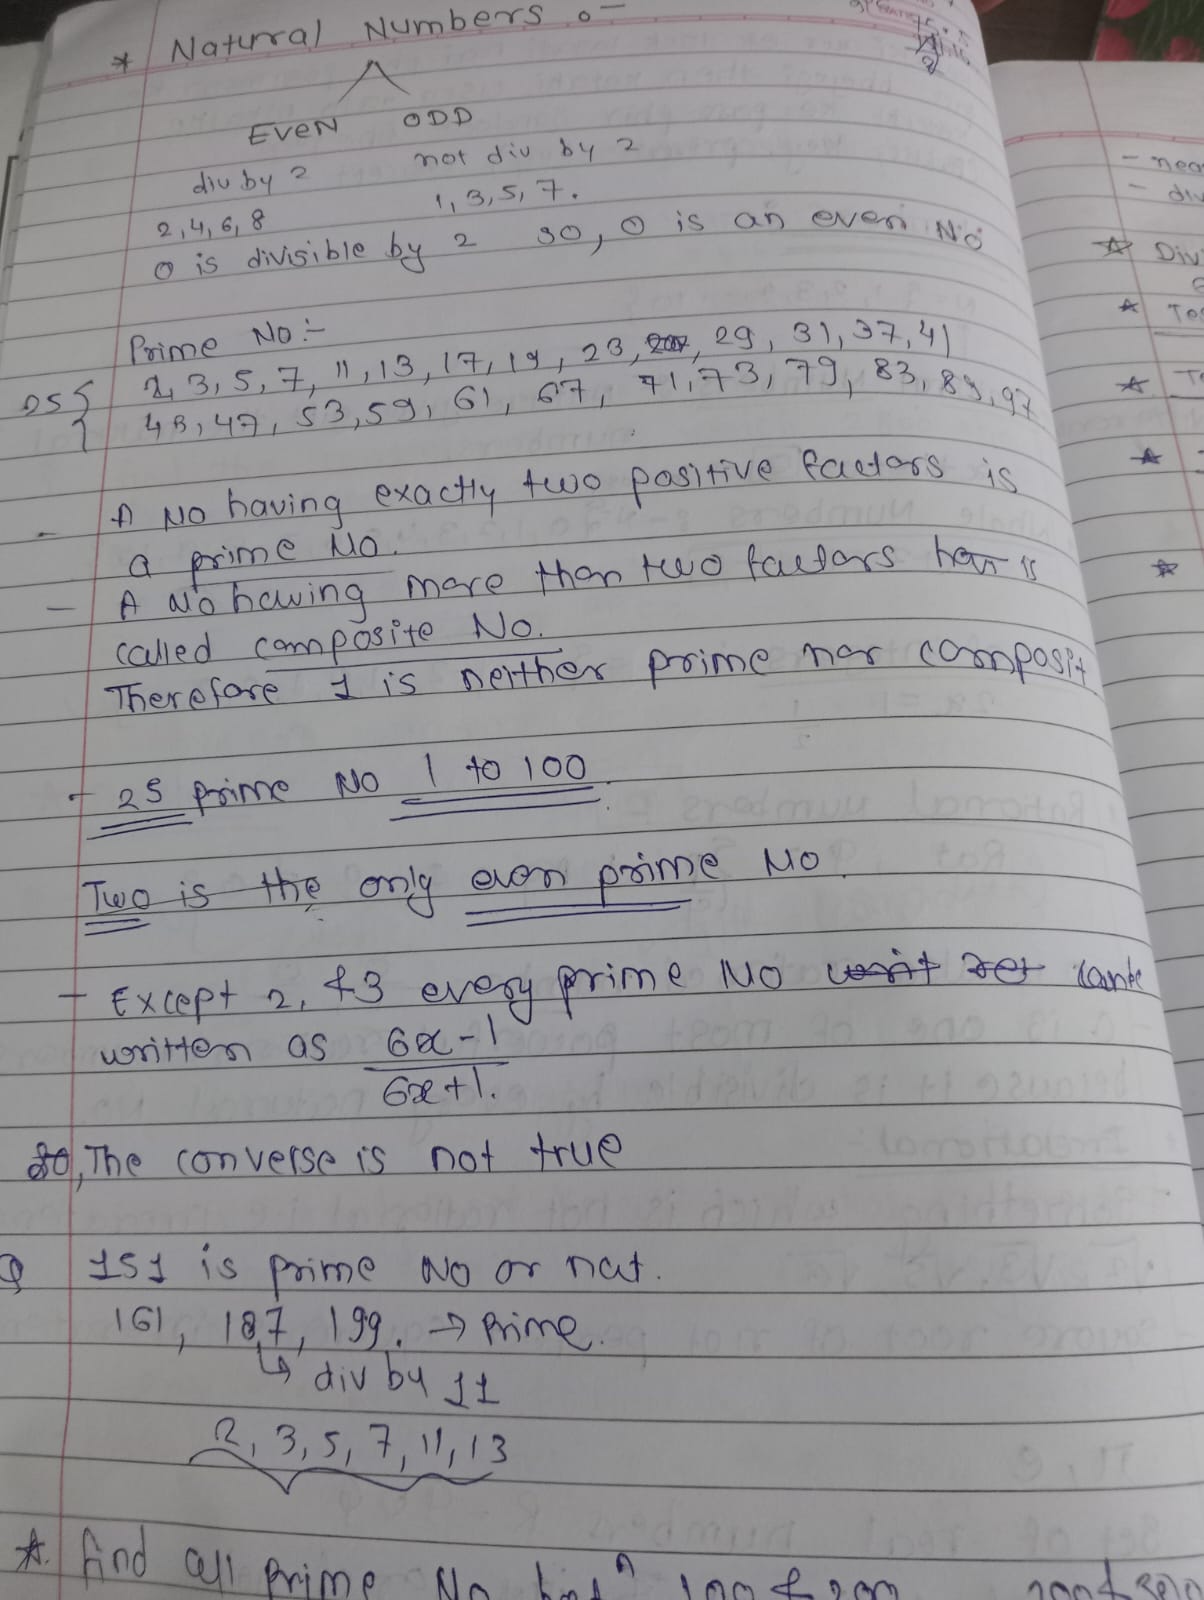 * Natural Numbers :-
EVEN ODD
div by 2 not div by 2
2,4,6,8 1,3,5,7.
0 is divisible by 2 so, 0 is an even No
Prime No:-
2, 3, 5, 7, 11, 13, 17, 19, 23, 29, 31, 37, 41
25 { 43, 47, 53, 59, 61, 67, 71, 73, 79, 83, 89, 97
- A No having exactly two positive factors is
a prime No.
- A No having more than two factors is
called composite No.
Therefore 1 is neither prime nor composit
- 25 prime No 1 to 100.
Two is the only even prime No.
- Except 2, & 3 every prime No can be
written as 6x-1
6x+1.
So, The converse is not true
Q 151 is prime No or not.
161, 187, 199. → Prime.
↳ div by 11
2, 3, 5, 7, 11, 13
*. find all prime No betn 100 & 200 200 & 300
- nea
- div
* Div
* Tes
* Te
*
*